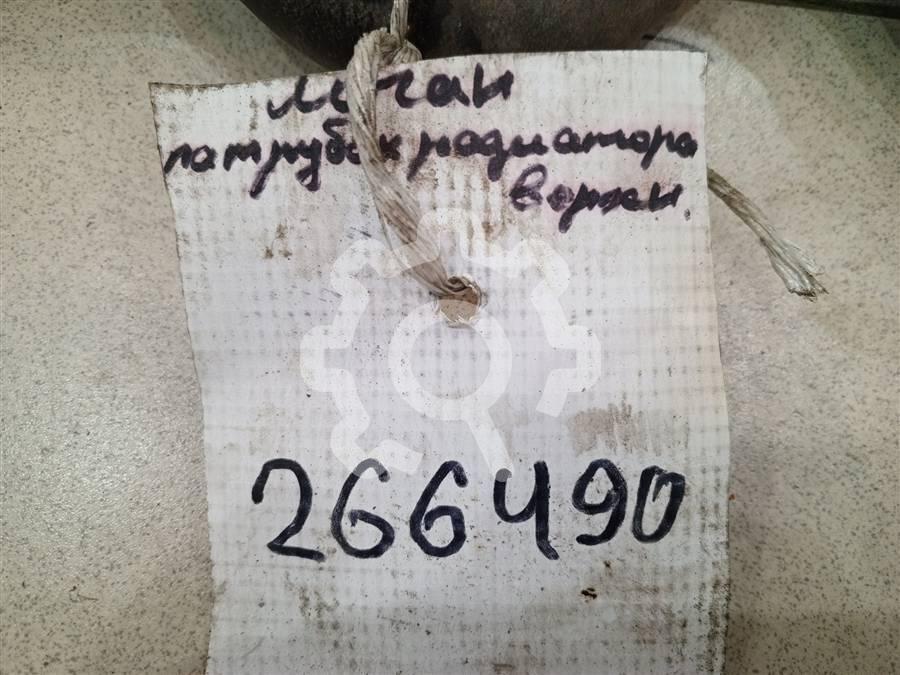 Логан
патрубок радиатора
верхн
266490